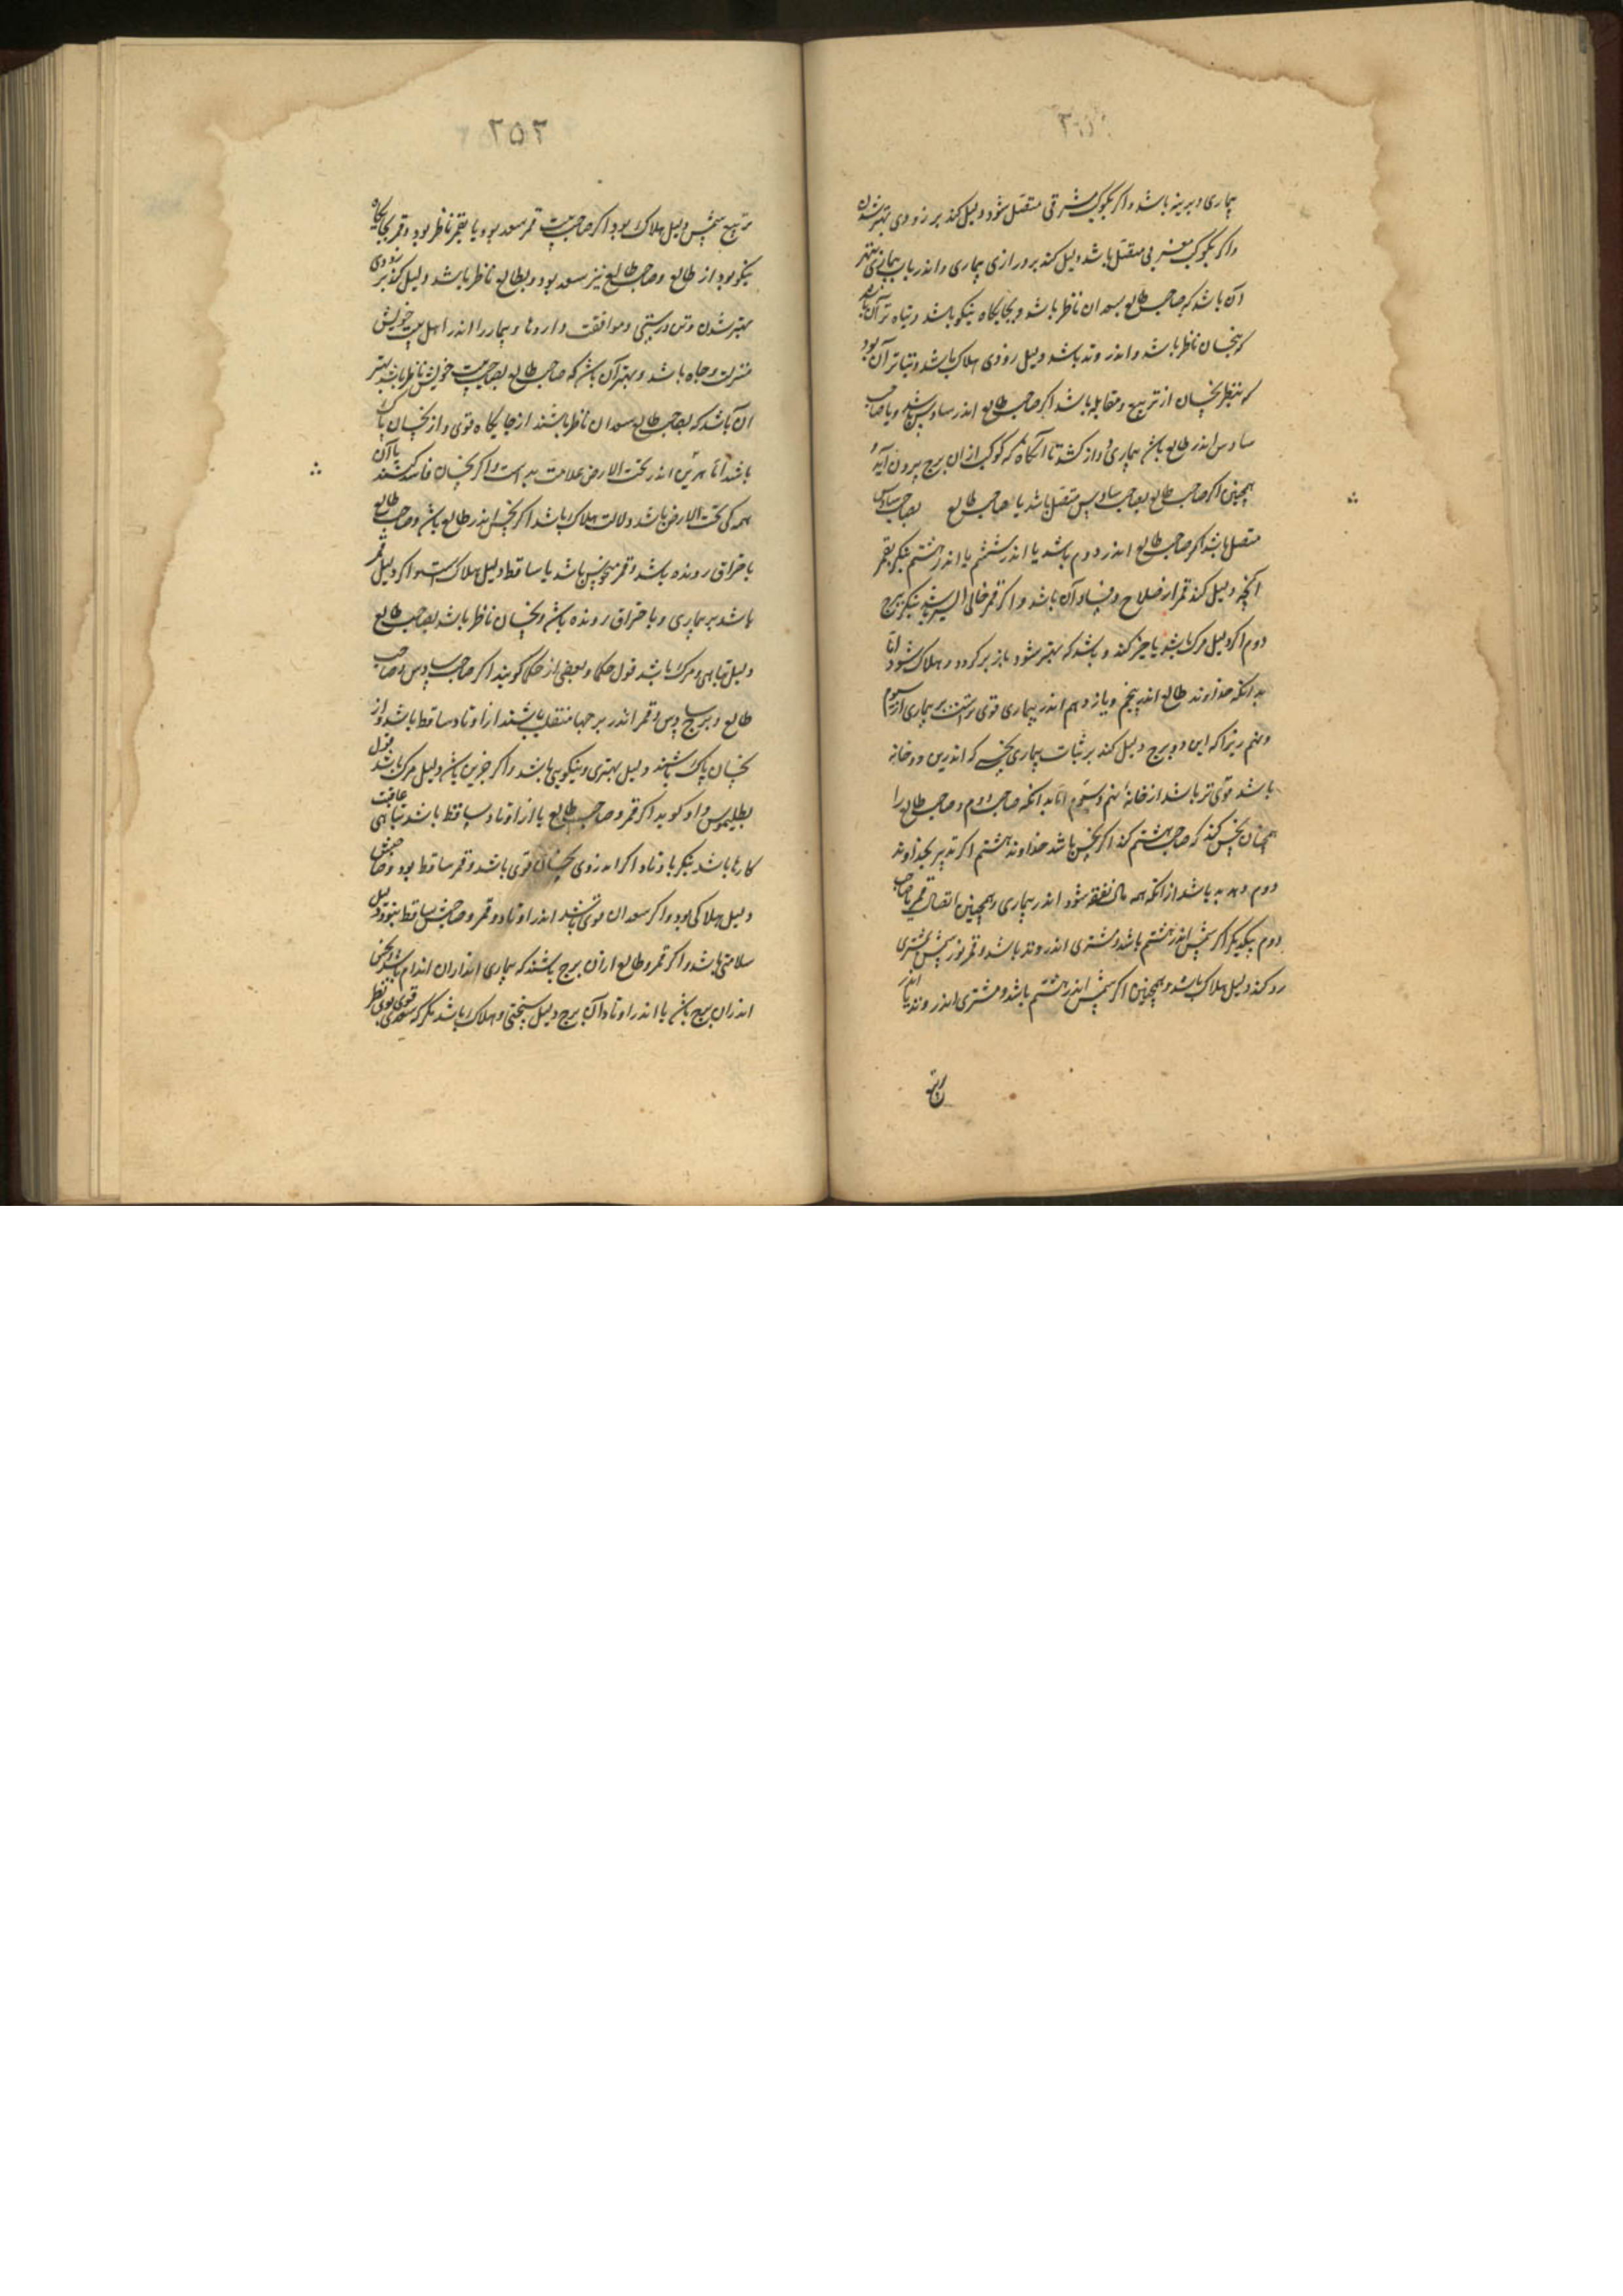 بیماری دیرینه باشد و اکر بکوکب مشرقی متصل شود دلیل کند بر زودی بهتر شدن
واکر بکوکب مغربی متصل باشد دلیل کند بر درازی بیماری و اندر باب بیماری بهتر
آن باشد که صاحب طالع بسعدان ناظر باشد و بجایکاه نیکو باشد و تباه تر آن باشد
که بنحسان ناظر باشد و اندر وتد باشد دلیل زودی هلاک باشد و تباتر آن بود
که بنظر نحسان از تربیع و مقابله باشد اکر صاحب طالع اندر سادس باشد و یا صاحب
سادس اندر طالع باشد بیماری دراز کشد تا آنکاه که کوکب از ان برج بیرون آید و
همچنین اکر صاحب طالع بصاحب سادس متصل باشد یا صاحب طالع بصاحب سادس
متصل باشد اکر صاحب طالع اندر دوم باشد یا اندر ششم یا اندر هشتم بنکر بقمر
آنچه دلیل کند قمر از صلاح و فساد آن باشد و اکر قمر خالی السیر باشد بنکر ببرج
دوم اکر دلیل مرک باشد یا چیز کند و باشد که بهتر شود باز بر کردد و هلاک شود اما
بدانکه خداوند طالع اندر پنجم و یازدهم اندر بیماری قوی تر است بر بیماری از سوم
و نهم زیرا که این دو برج دلیل کند بر ثبات بیماری نحسی که اندرین دو خانه
باشد قوی تر باشد از خانهٔ نهم و سوم اما بدانکه صاحب دوم و صاحب طالع را
همچنان نحس کند که صاحب هشتم کند اکر نحس باشد خداوند هشتم اکر تدبیر بخداوند
دوم دهد به باشد از انکه همه مال نفقه شود اندر بیماری و همچنین اتصال قمر با صاحب
دوم بنکر اکر شمس اندر هشتم باشد و مشتری اندر وتد باشد و قمر نور شمس بمشتری
رد کند دلیل هلاک باشد و همچنین اکر شمس اندر هشتم باشد و مشتری اندر وتد یا اندر
۲۵۲
تربیع شمس دلیل هلاک بود اکر صاحب بیت قمر سعد بود یا بقمر ناظر بود و قمر بجایکاه
نیکو بود از طالع و صاحب طالع نیز سعد بود و بطالع ناظر باشد دلیل کند بر زودی
بهتر شدن و تن درستی و موافقت داروها و بیمار را اندر اهل بیت خویش
منزلت و جاه باشد و بهتر آن باشد که صاحب طالع بصاحب بیت خویش ناظر باشد بهتر
ان باشد که بصاحب طالع سعدان ناظر باشند از جایکاه قوی و از نحسان پاک
باشد اما هر یکی اندر تحت الارض علامت بد است و اکر نحسان فاسد کنند با آن
همه کی تحت الارض باشد دلالت هلاک باشد اکر نحس اندر طالع باشد و صاحب طالع
باحتراق رونده باشد و قمر منحوس باشد یا ساقط دلیل هلاک است و اکر دلیل قمر
باشد بر بیماری و باحتراق رونده باشد و نحسان ناظر باشد بصاحب طالع
دلیل تباهی و مرک باشد قول حکما و بعضی از حکما کویند اکر صاحب سادس و صاحب
طالع و برج سادس و قمر اندر برجها منقلب باشند از اوتاد ساقط باشد و از
نحسان پاک باشند دلیل بهتری و نیکویی باشد و اکر جز این باشد دلیل مرک باشد قول
بطلیموس و او کوید اکر قمر و صاحب طالع یا از اوتاد ساقط باشد تباهی عاقبت
کارها باشد بنکر باوتاد اکر اندروی نحسان قوی باشد و قمر ساقط بود و صاحبش
دلیل هلاکی بود و اکر سعدان قوی باشند اندر اوتاد و قمر و صاحبش ساقط بود دلیل
سلامتی باشد و اکر قمر و طالع از ان برج باشند که بیماری اندران اندام باشد و نحس
اندران برج باشد یا اندر اوتاد آن برج دلیل سختی و هلاک باشد مکر که سعدی قوی بوی نظر